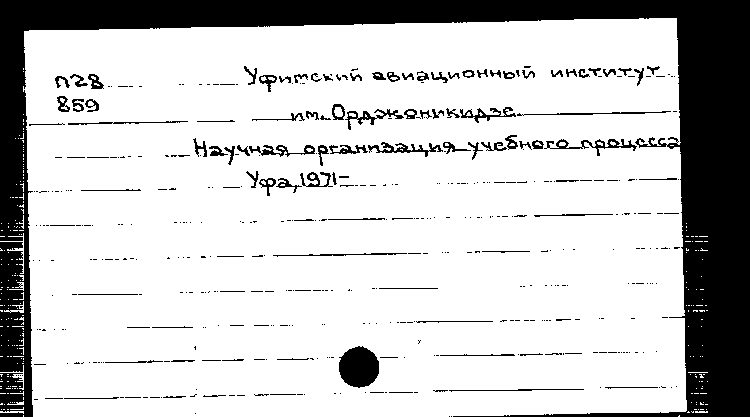 П28
859
Уфимский авиационный институт
им. Орджоникидзе.
Научная организация учебного процесса
Уфа, 1971-